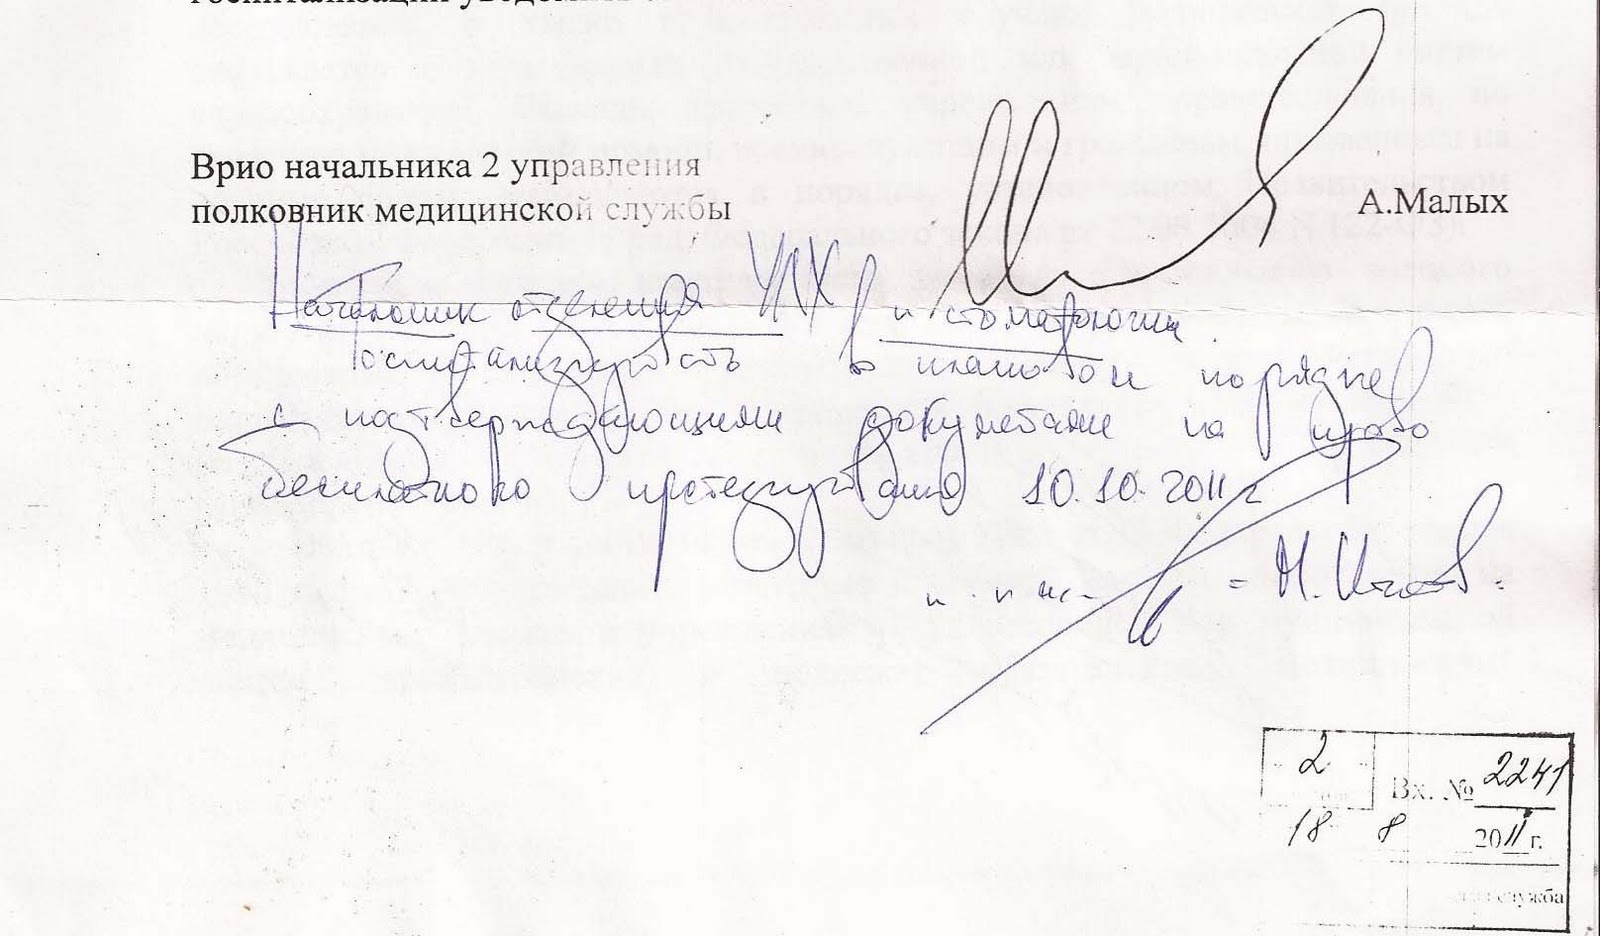 госпитализации уведомить
Врио начальника 2 управления
полковник медицинской службы
А.Малых
Начальник отделения ЧЛХ и стоматологии
Госпитализировать в плановом порядке
с подтверждающими документами на право
бесплатного протезирования 10.10.2011г
2
Вх. № 2241
18 8 2011 г.
служба